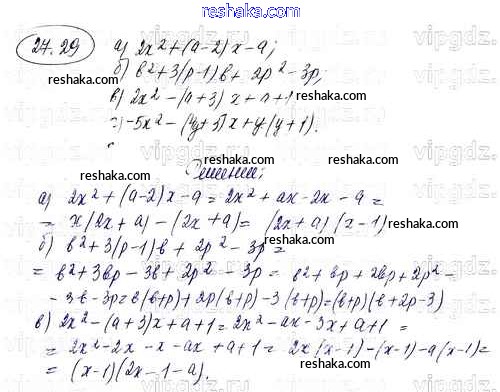 27.29
reshaka.com
а) 2x² + (a-2)x - a;
б) b² + 3(p-1)b + 2p² - 3p,
в) 2x² - (a+3)x + a+1
г) -5x² - (y+3)x + y(y+1).
reshaka.com
reshaka.com
Решение:
а) 2x² + (a-2)x - a = 2x² + ax - 2x - a =
= x(2x+a) - (2x+a) = (2x+a)(x-1)
б) b² + 3(p-1)b + 2p² - 3p =
= b² + 3bp - 3b + 2p² - 3p = b² + bp + 2bp + 2p² -
- 3b - 3p = b(b+p) + 2p(b+p) - 3(b+p) = (b+p)(b+2p-3)
в) 2x² - (a+3)x + a+1 = 2x² - ax - 3x + a + 1 =
= 2x² - 2x - x - ax + a + 1 = 2x(x-1) - (x-1) - a(x-1) =
= (x-1)(2x-1-a).
reshaka.com
reshaka.com
reshaka.com
reshaka.com
reshaka.com
reshaka.com